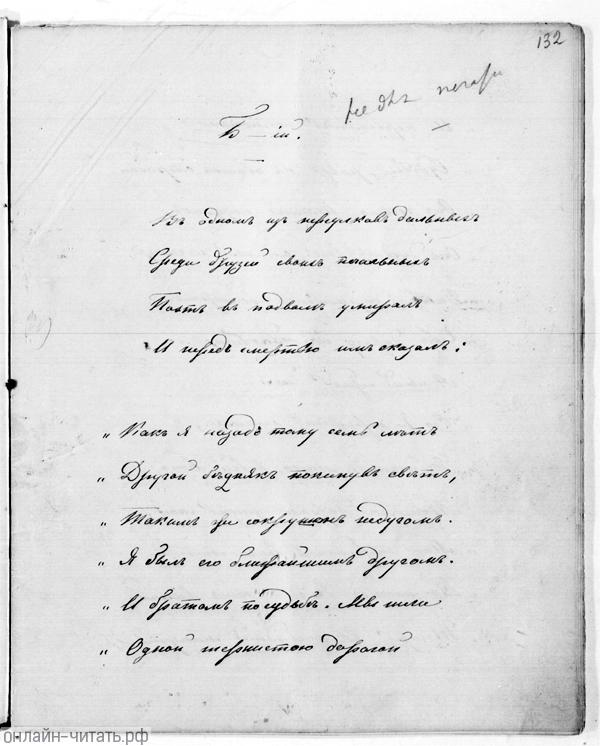 132
Не для печати
Б—ій.
Въ одномъ изъ переулковъ дальнихъ
Среди друзей своихъ печальныхъ
Поэтъ въ подвалѣ умиралъ
И передъ смертью имъ сказалъ:
„ Какъ я назадъ тому семь лѣтъ
„ Другой бѣднякъ покинулъ свѣтъ,
„ Такимъ же сокрушонъ недугомъ.
„ Я былъ его ближайшимъ другомъ.
„ И братомъ по судьбѣ. Мы шли
„ Одной тернистою дорогой
онлайн-читать.рф